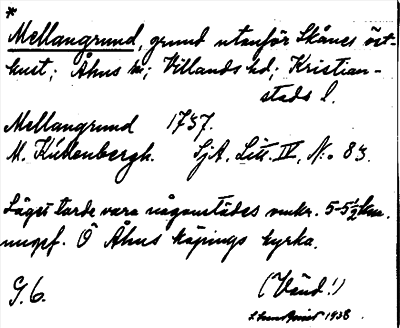 *
Mellangrund, grund utanför Skånes öst-
kust; Åhus sn; Villands hd; Kristian-
stads l.
Mellangrund 1737.
M. Kullenbergh. SjA. Litt. IV, No 83.
Läget torde vara någonstädes omkr. 5-5½ km.
ungef. O Åhus köpings kyrka.
G. 6. (Vänd!)
1938